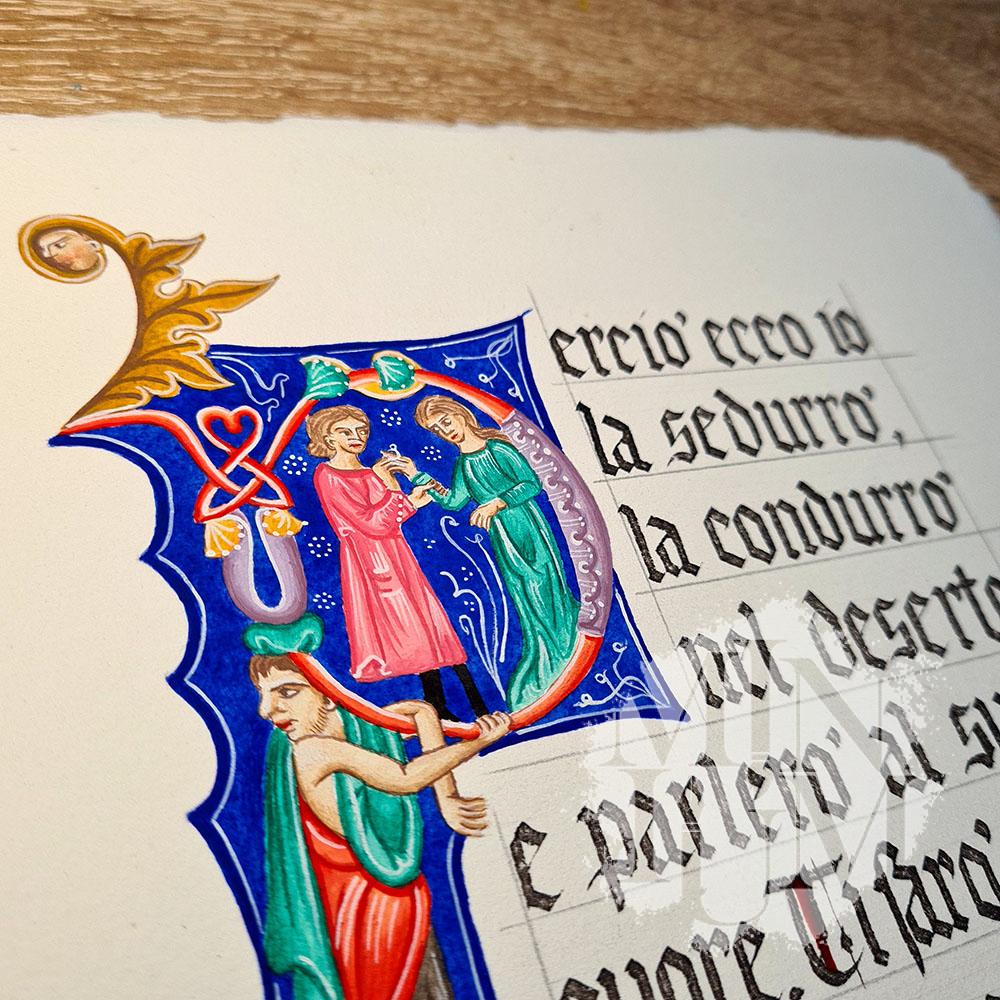 Perciò ecco io
la sedurrò,
la condurrò
nel deserto
e parlerò al su
cuore. Ti farò
MINIUM